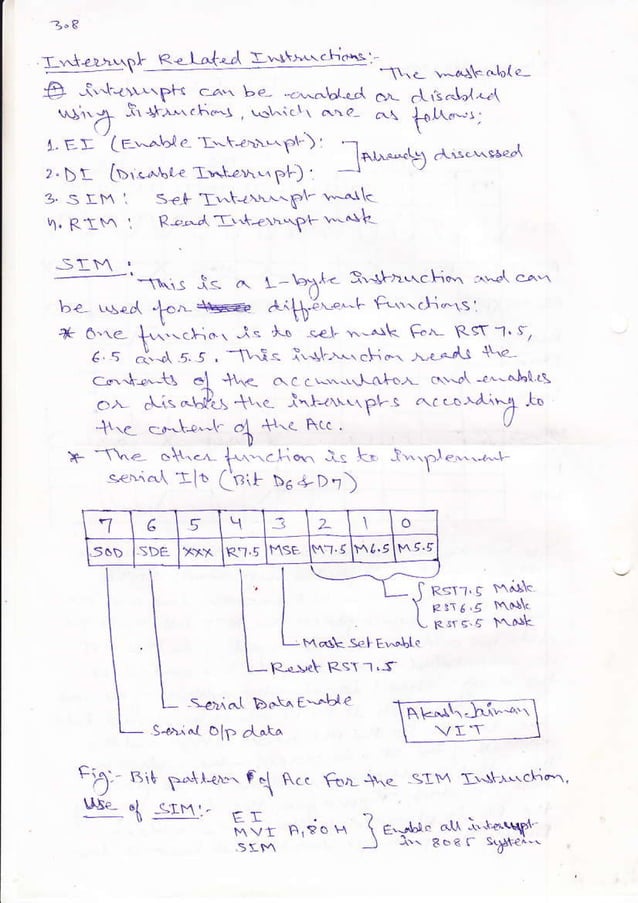 308
Interrupt Related Instructions:-
The maskable
interrupts can be enabled or disabled
using instructions, which are as follows:
1. EI (Enable Interrupt):
2. DI (Disable Interrupt): -
Already discussed
3. SIM : Set Interrupt mask
4. RIM : Read Interrupt mask
SIM :
This is a 1-byte Instruction and can
be used for different Functions:
* One function is to set mask For RST 7.5,
6.5 and 5.5. This instruction reads the
contents of the accumulator and enables
or disables the interrupts according to
the content of the Acc.
* The other function is to Implement
serial I/O (Bit D6 & D7)
7 6 5 4 3 2 1 0
SOD SDE XXX R7.5 MSE M7.5 M6.5 M5.5
RST7.5 Mask
RST6.5 Mask
RST5.5 Mask
Mask Set Enable
Reset RST7.5
Serial Data Enable
Serial O/p data
Akash Jaiman
VIT
Fig:- Bit pattern of Acc For the SIM Instruction.
Use of SIM:-
EI
MVI A, 80H
SIM
Enable all interrupt
in 8085 System